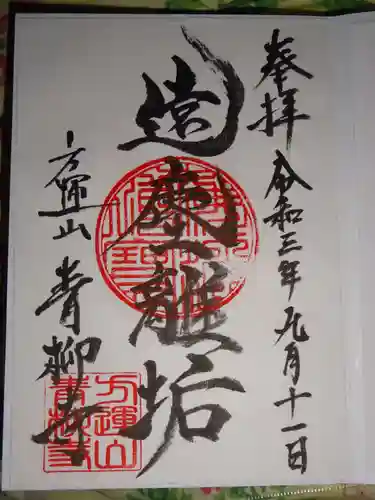 奉拝
令和三年九月十一日
遠塵離垢
万運山
青柳寺
万運山
青柳寺